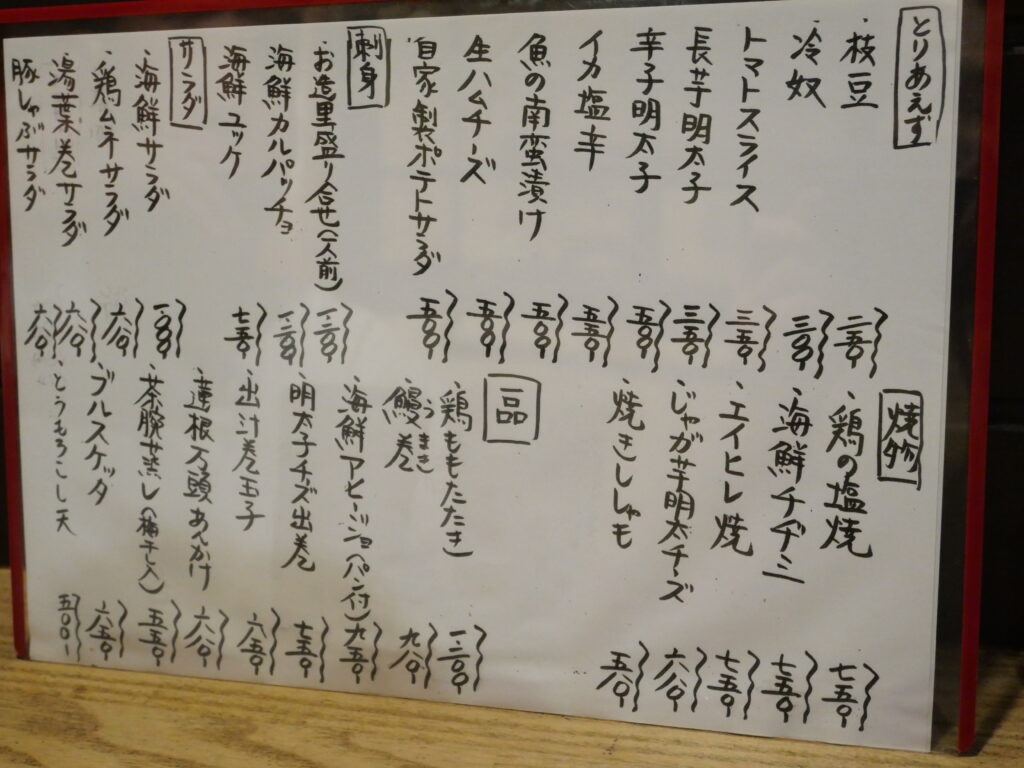 とりあえず
・枝豆 二五〇
・冷奴 三三〇
トマトスライス 三五〇
長芋明太子 三五〇
辛子明太子 五〇〇
イカ塩辛 五五〇
魚の南蛮漬け 五〇〇
生ハムチーズ 五〇〇
自家製ポテトサラダ 五〇〇
刺身
・お造里盛り合せ(一人前)
海鮮カルパッチョ
海鮮ユッケ 七五〇
サラダ
・海鮮サラダ
・鶏ムネサラダ 六八〇
・湯葉巻サラダ 六八〇
豚しゃぶサラダ 六八〇
焼物
・鶏の塩焼 七五〇
・海鮮チヂミ 七五〇
・エイヒレ焼 七五〇
・じゃが芋明太チーズ 六八〇
・焼きししゃも 五八〇
一品
・鶏ももたたき
・鰻巻 九八〇
うまき
・海鮮アヒージョ(パン付) 九五〇
・明太子チーズ出巻 七五〇
・出汁巻玉子 六五〇
・蓮根万頭あんかけ 六八〇
・茶腕せ蒸し(梅干入) 五五〇
・ブルスケッタ 六五〇
・とうもろこし天 五〇〇